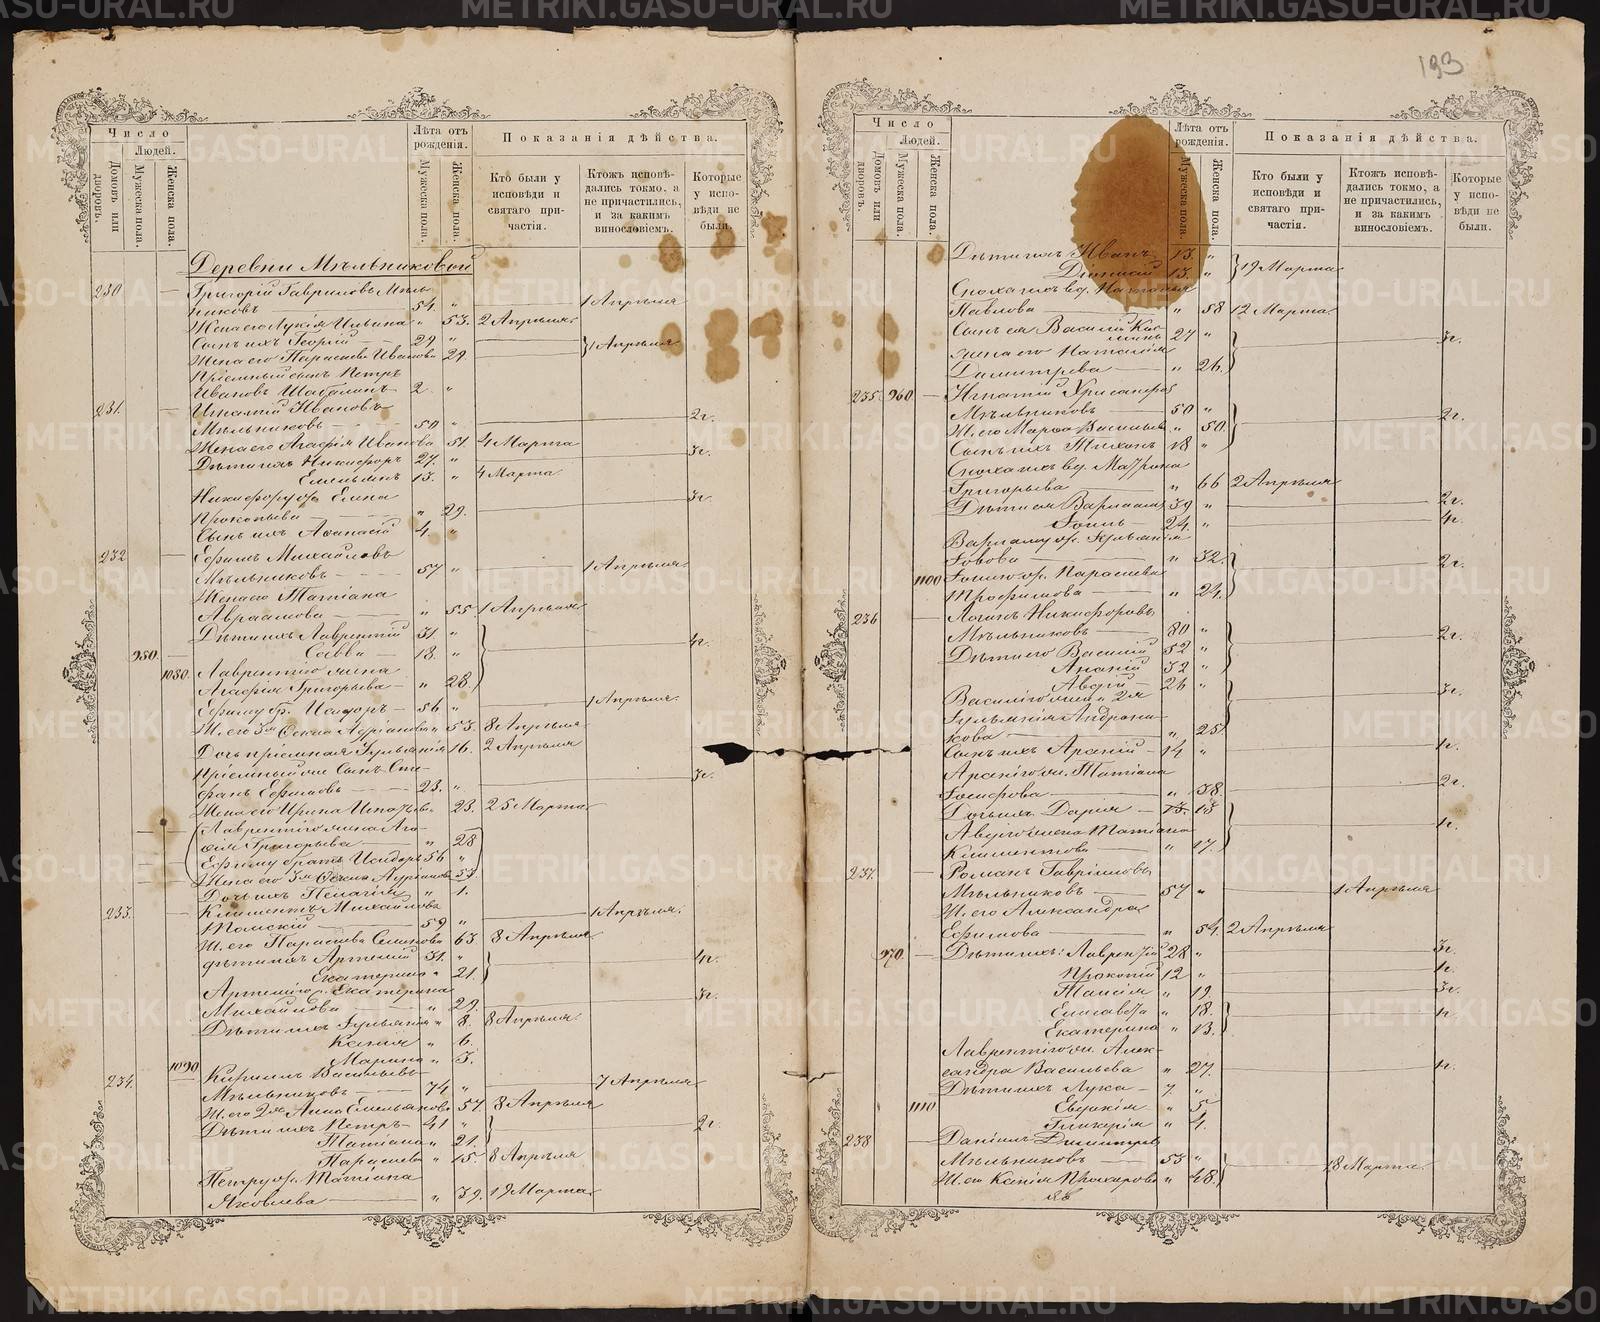 193
Число
Людей.
Домовъ или дворовъ.
Мужеска пола.
Женска пола.
Лѣта отъ рожденія.
Мужеска пола.
Женска пола.
Показанія дѣйства.
Кто были у исповѣди и святаго при-частія.
Ктожъ исповѣ-дались токмо, а не причастились, и за какимъ винословіемъ.
Которые у испо-вѣди не были.
Деревни Мѣльниковой
230 Григорій Гавриловъ Мѣль-
никовъ 54. " 1 Апрѣля
Жена его Лукія Ильина " 53. 2 Апрѣля
Сынъ ихъ Георгій 29. "
Жена его Параскева Иванова 29. 1 Апрѣля
Пріемный сынъ Петръ
Ивановъ 2 "
231. Игнатій Ивановъ
Мѣльниковъ 50 " 2г.
Жена его Агафія Иванова 51. 4 Марта
Дѣти ихъ Никифоръ 27. " 3г.
Емельянъ 13. " 4 Марта
Никифору ж. Елена
Прокопьева " 29. 3г.
Сынъ ихъ Афанасій 4. "
232 Ефимъ Михайловъ
Мѣльниковъ 57 " 1 Апрѣля
Жена его Татіана
Авраамова " 55. 1 Апрѣля
Дѣти ихъ Лаврентій 31. "
950. Савва 18. " 4г.
1080. Лаврентію жена
Агафія Григорьева " 28.
Ефиму бр. Исидоръ 56 " 1 Апрѣля
Ж. его 3я " 53. 8 Апрѣля
Дочь пріемная Гульянія 16. 2 Апрѣля
Пріемный сынъ Сте-
фанъ Ефимовъ 23. " 3г.
Жена его Ирина 23. 25 Марта
Лаврентію жена Ага-
фія Григорьева " 28
Ефиму братъ Исидоръ 56 "
Жена его 3я 53.
Дочь ихъ Пелагія " 1.
233. Климентъ Михайловъ
Томскій 59 " 1 Апрѣля.
Ж. его Параскева Семенова 63. 8 Апрѣля
дѣти ихъ Артемій 31. " 4г.
Екатерина " 21.
Артемію ж. Екатерина
Михайлова " 29. 3г.
Дѣти ихъ Гульянія " 8. 8 Апрѣля
Ксенія " 6.
Марина " 3.
1090
234. Кириллъ Васильевъ
Мѣльниковъ 74 " 7 Апрѣля
Ж. его 2я Анна Емельянова 57. 8 Апрѣля
Дѣти ихъ Петръ 41 "
Татіана " 21. 2г.
Параскева " 15. 8 Апрѣля
Петру ж. Татіана
Яковлева " 39. 19 Марта
Число
Людей.
Домовъ или дворовъ.
Мужеска пола.
Женска пола.
Лѣта отъ рожденія.
Мужеска пола.
Женска пола.
Показанія дѣйства.
Кто были у исповѣди и святаго при-частія.
Ктожъ исповѣ-дались токмо, а не причастились, и за какимъ винословіемъ.
Которые у испо-вѣди не были.
Дѣти ихъ Иванъ 13. "
Діонисій 13. " 19 Марта
Сноха ихъ вд. Наталья
Павлова " 58 12 Марта
Сынъ ея Василій 27 "
жена его Наталія 3г.
Димитріева " 26.
235. 960. Игнатій Хрисанфовъ
Мѣльниковъ 50 "
Ж. его Марѳа Васильева " 50. 2г.
Сынъ ихъ Тихонъ 18 "
Сноха ихъ вд. Матрона
Григорьева " 66 2 Апрѣля
Дѣти ея Варлаамъ 39 " 2г.
Фокинъ 24. " 4г.
Варлааму ж. Гульянія
Іовова " 32. 2г.
1100 Параскева
Трофимова " 24.
236 Логинъ Никифоровъ
Мѣльниковъ 80 "
Дѣти его Василій 52 " 2г.
Ананій 32 "
Авдій 26 "
Василію жена 2я
Гульянія Андрони- 3г.
кова " 25.
Сынъ ихъ Арсеній 14 " 1г.
Арсенію ж. Татіана
Іосифова " 38. 2г.
Дочь ихъ Дарія 13. 13
Авдію жена Татіана 1г.
Климентова " 17.
237. Романъ Гавриловъ
Мѣльниковъ 57 " 1 Апрѣля
Ж. его Александра
Ефимова " 54. 2 Апрѣля
970. Дѣти ихъ: Лаврентій 28 " 3г.
Прокопій 12 " 1г.
Таисія " 19. 3г.
Елисавета " 18. 1г.
Екатерина " 13.
Лаврентію ж. Алек-
сандра Васильева " 27. 1г.
Дѣти ихъ Лука 7. "
1110 Евдокія " 5
Гликерія " 1.
238 Даніилъ Димитріевъ
Мѣльниковъ 53 " 18 Марта
Ж. его Ксенія " 48.